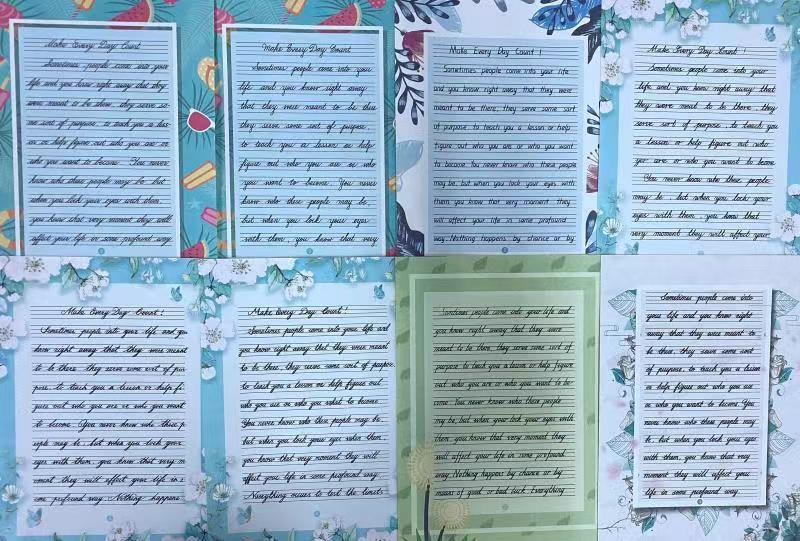 Make Every Day Count
Sometimes people come into your
life and you know right away that they
were meant to be there, they serve so-
me sort of purpose, to teach you a les-
son or help figure out who you are or
who you want to become. You never
know who these people may be. but
when you lock your eyes with them,
you know that very moment they will
affect your life in some profound way
Make Every Day Count
Sometimes people come into you
life and you know right away
that they were meant to be there
they serve some sort of purpose,
to teach you a lesson or help
figure out who you are or who
you want to become. You never
know who these people may be,
but when you lock your eyes
with them, you know that very
Make Every Day Count !
Sometimes people come into your life
and you know right away that they were
meant to be there, they serve some sort
of purpose to teach you a lesson or help
figure out who you are or who you want
to become. You never know who these people
may be, but when you lock your eyes with
them, you know that very moment they
will affect your life in some profound
way. Nothing happens by chance or by
Make Every Day Count !
Sometimes people come into your
life, and you know right away that
they were meat to be there, they
serve sort of purpose, to teach you
a lesson or help figure out who
you are or who you want to become
You never know who these people
may be, but when you lock your
eyes with them, you know that
very moment they will affect your
Make Every Day Count !
Sometimes people into your life and you
know right away that they were meant
to be there, they serve some sort of pur-
pose, to teach you a lesson or help fi-
gure out who you are or who you want
to become. You never know who these p
eople may be, but when you lock your
eyes with them, you know that very m
oment they will affect your life in s
ome profound way. Nothing happens
Make Every Day Count !
Sometimes people come into your life and
you know right away that they were
meant to be there, they serve some sort of purpose,
to teach you a lesson or help figure out
who you are or who you what to become
You never know who these people may be,
but when you lock your eyes them,
you know that very moment they will
affect your life in some profound way
occurs to test the limits
Sometimes people come into your life and
you know right away that they were
meant to be there, they serve some sort of
purpose to teach you a lesson or help figure
out who you are or who you want to be-
come. You never know who these people
my be, but when you lock your eyes with
them, you know that very moment they
will affect your life in some profound
way. Nothing happens by chance or by
means of good or bad luck. Everything
Sometimes people come into
your life and you know right
away that they were meant to
be there, they serve some sort
of purpose, to teach you a lesson
or help figure out who you are
or who you want to become. You
never know who these people may
be, but when you lock your eyes
with them, you know that very
moment they will affect your
life in some profound way.